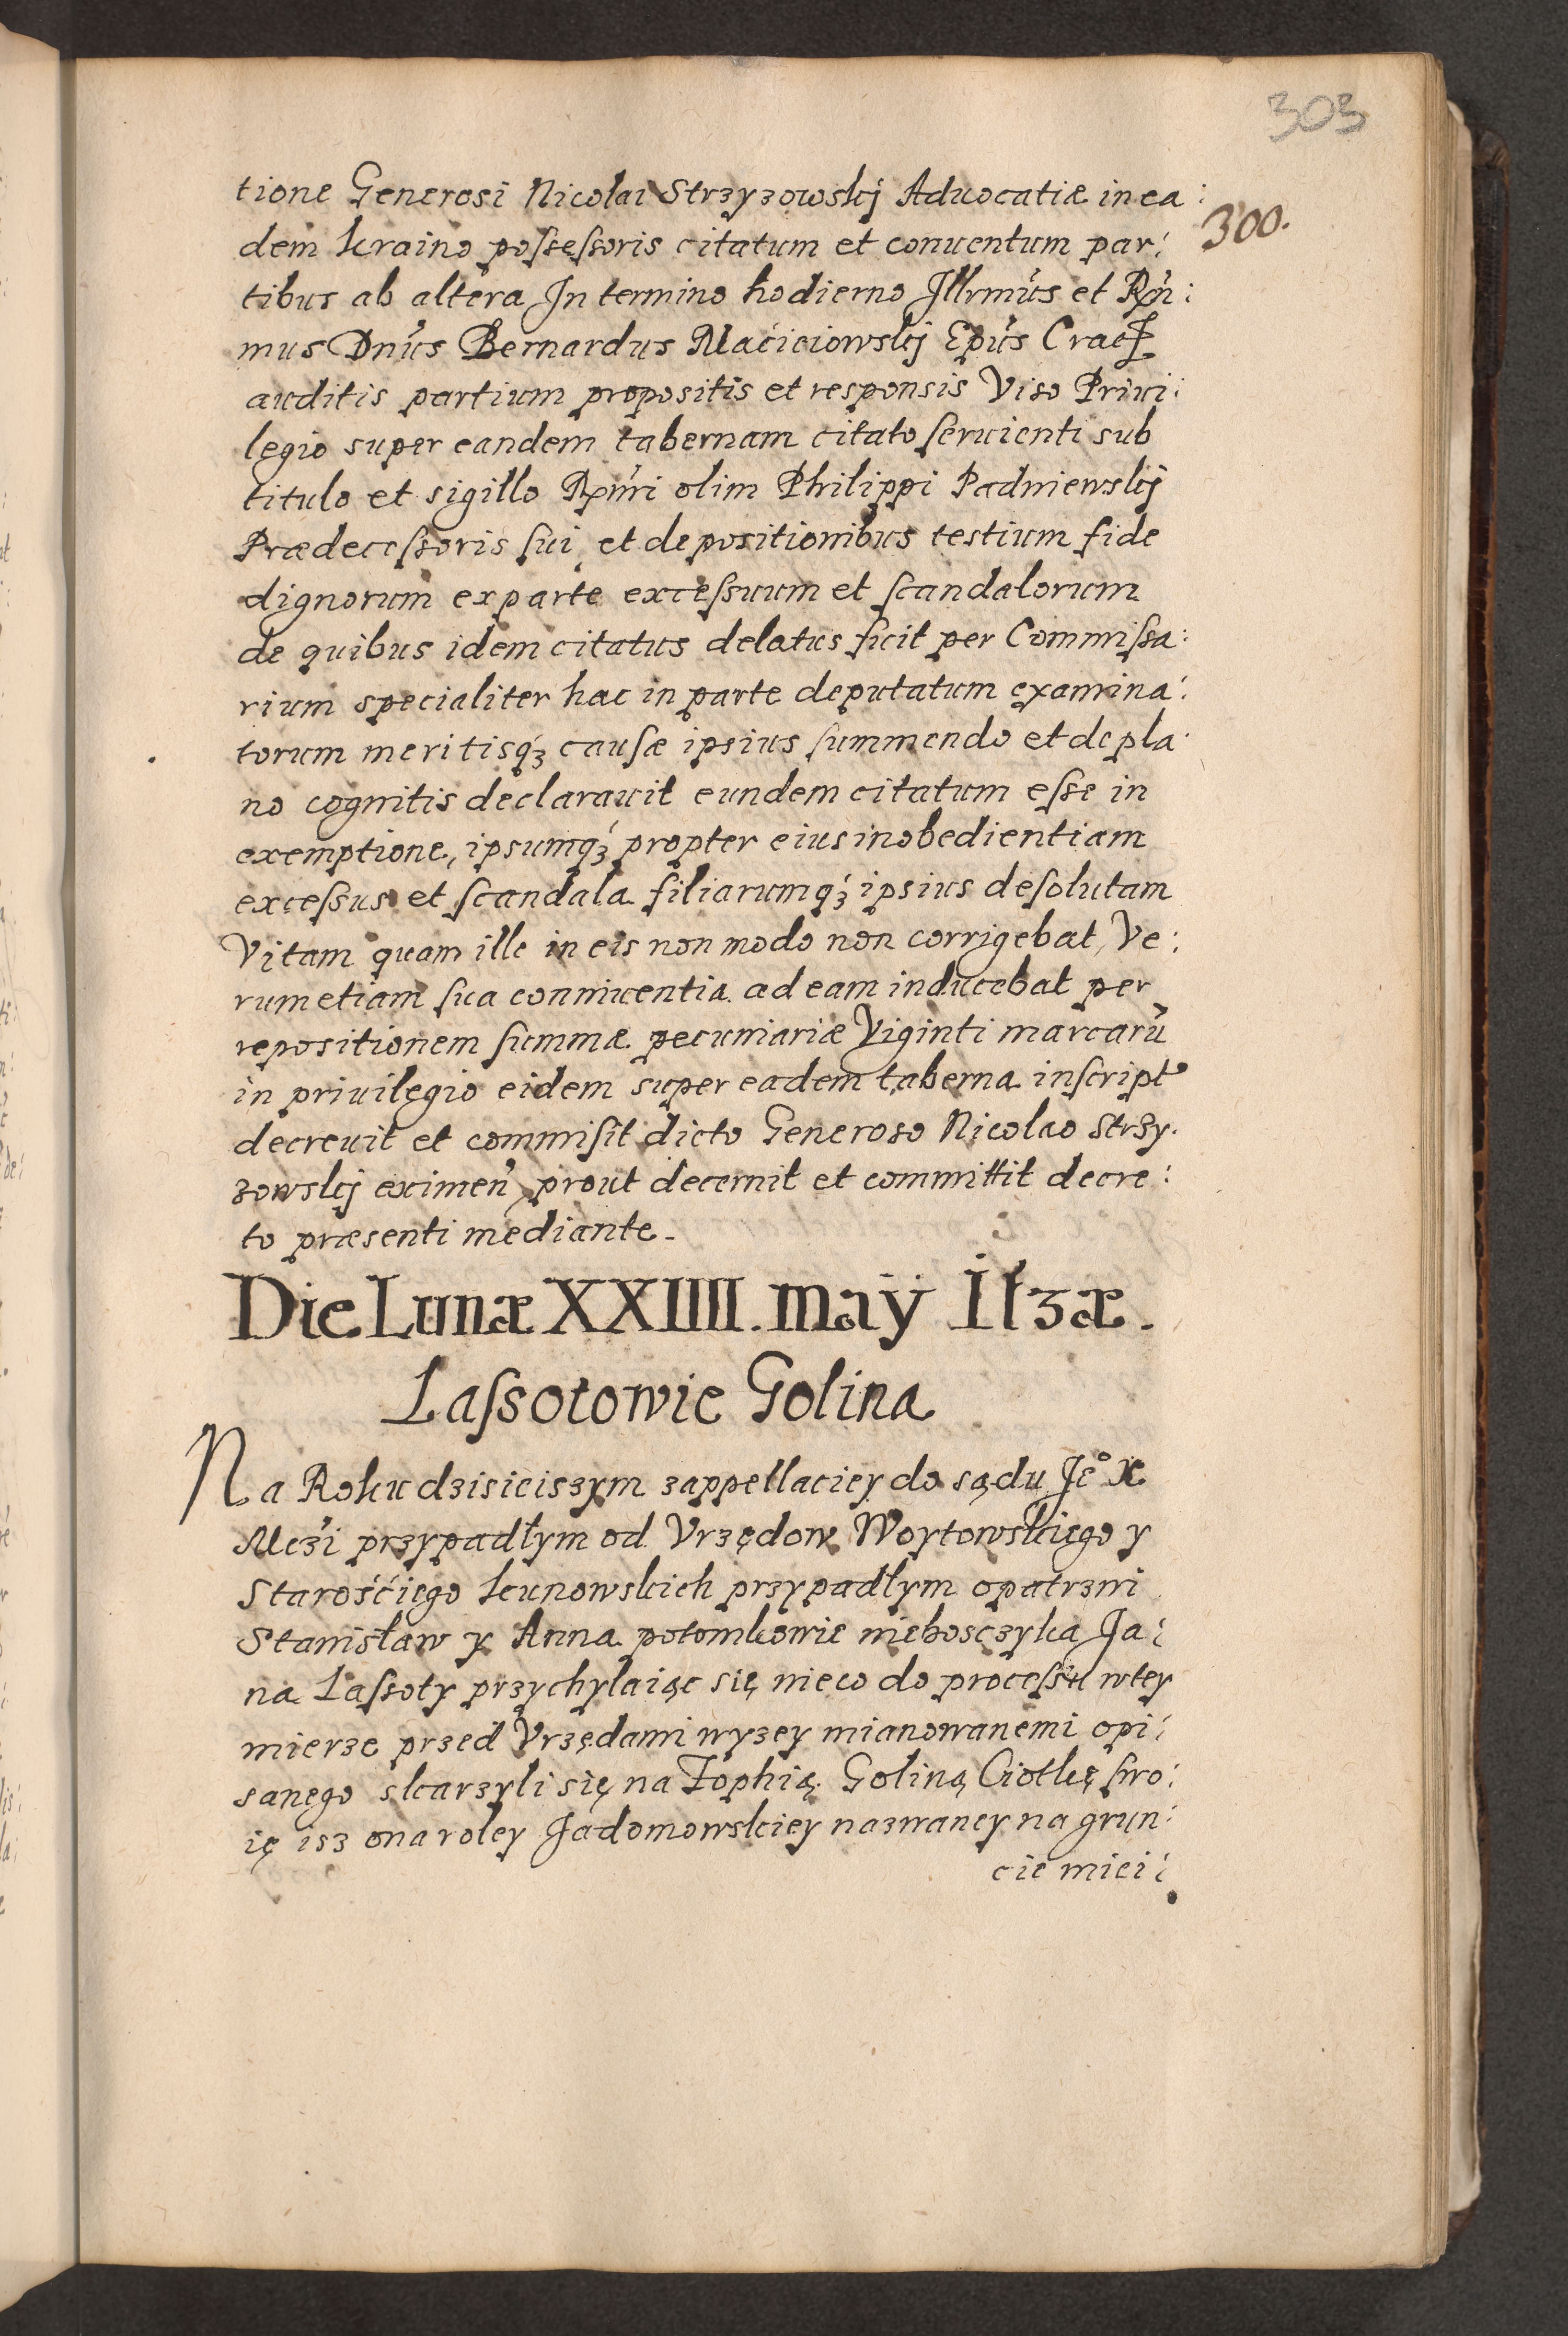 303
tione Generosi Nicolai Strzyzowskij Aduocatiæ in ea:
300.
dem kraino poſseſsoris citatum et conuentum par:
tibus ab altera In termino hodierno Jllrmús et Rxń:
mus Dnús Bernardus Maćieiowskij Epús Crac
auditis partium propositis et responsis Viso Priui:
legio super eandem tabernam citato ſeruienti sub
titulo et sigillo Rxmi olim Philippi Padniewskij
Prædeceſsoris ſui, et depositionibus testium fide
dignorum ex parte exceſsuum et ſcandalorum
de quibus idem citatus delatus fuit per Commiſsa:
rium specialiter hac in parte deputatum examina:
torum meritisq́ʒ cauſæ ipsius ſummendo et de pla:
no cognitis declarauit eundem citatum eſse in
exemptione, ipsumq́ʒ propter eius inobedientiam
exceſsus et ſcandala filiarumq́ʒ ipsius deſolutam
Vitam quam ille in eis non modo non corrigebat, Ve:
rum etiam ſua conniuentia ad eam inducebat per
repositionem ſummæ pecuniariæ Viginti marcarū
in priuilegio eidem super eadem taberna inſcript
decreuit et commiſit dicto Generoso Nicolao Strzy:
zowskij eximeń, prout decernit et committit decre:
to præsenti mediante.
Die Lunæ XXIIII. maÿ Itʒæ.
Laſsotowie Golina
Na Roku dzisieiszym zappellaciey do sądu Je° X
Mczi przypadłym od Vrzędow Woytowskiego y
Starośćiego kunowskich przypadłym opatrzni
Stanisław y Anna potomkowie nieboszczyka Ja:
na Laſsoty przychylaiąc się nieco do proceſsu wtey
mierze przed Vrzędami wyzey mianowanemi opi:
sanego skarzyli się na Zophią Goliną Ciotkę ſwo:
ię isz ona roley Jadomowskiey nazwaney na grun:
cie miei: